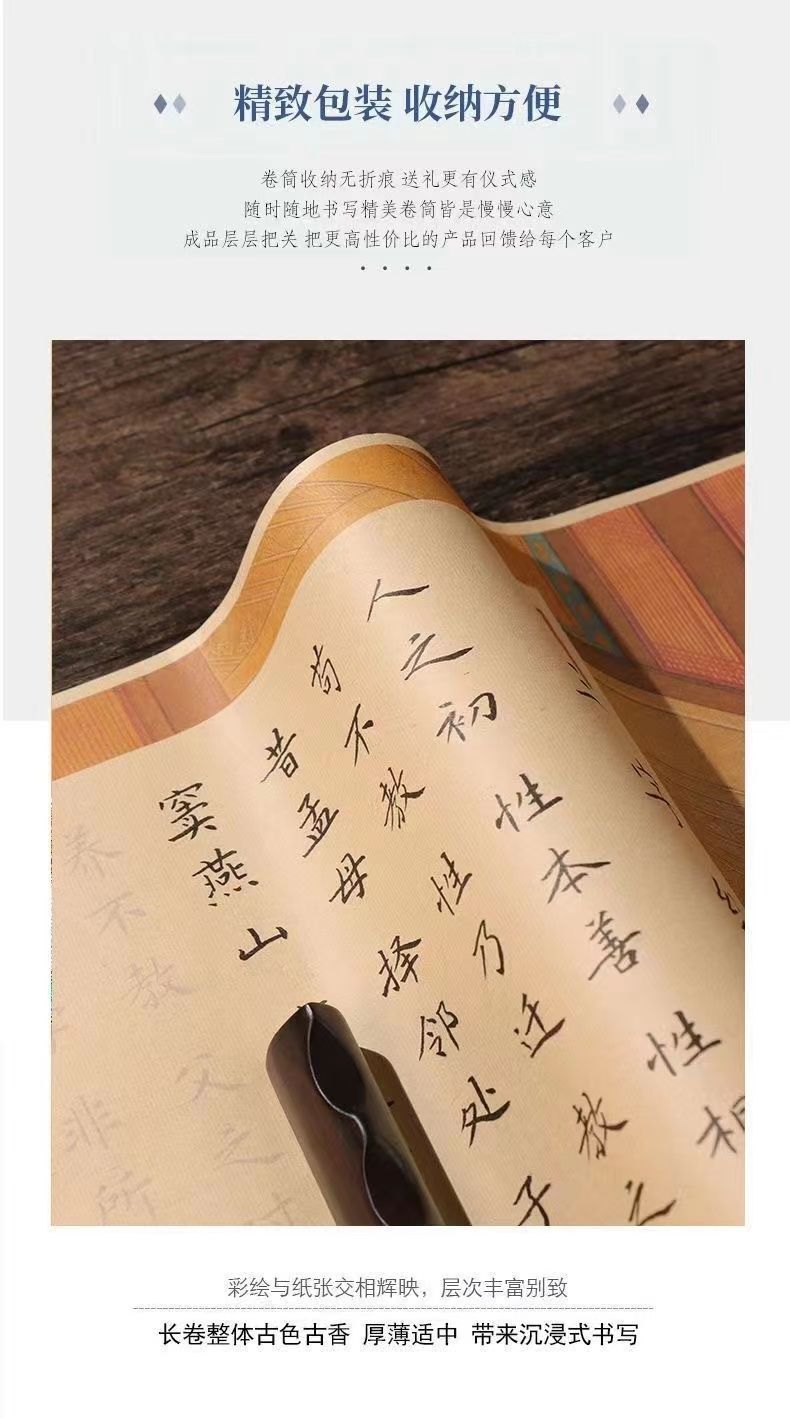 精致包装 收纳方便
卷筒收纳无折痕 送礼更有仪式感
随时随地书写精美卷筒皆是慢慢心意
成品层层把关 把更高性价比的产品回馈给每个客户
人之初 性本善 性相
苟不教 性乃迁 教之
昔孟母 择邻处 子
窦燕山
养不教 父之
非所
彩绘与纸张交相辉映，层次丰富别致
长卷整体古色古香 厚薄适中 带来沉浸式书写